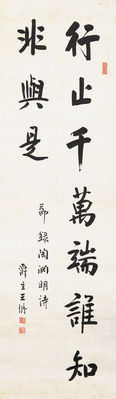 行止千萬端誰知
非與是
節錄陶淵明詩
爵生王垿